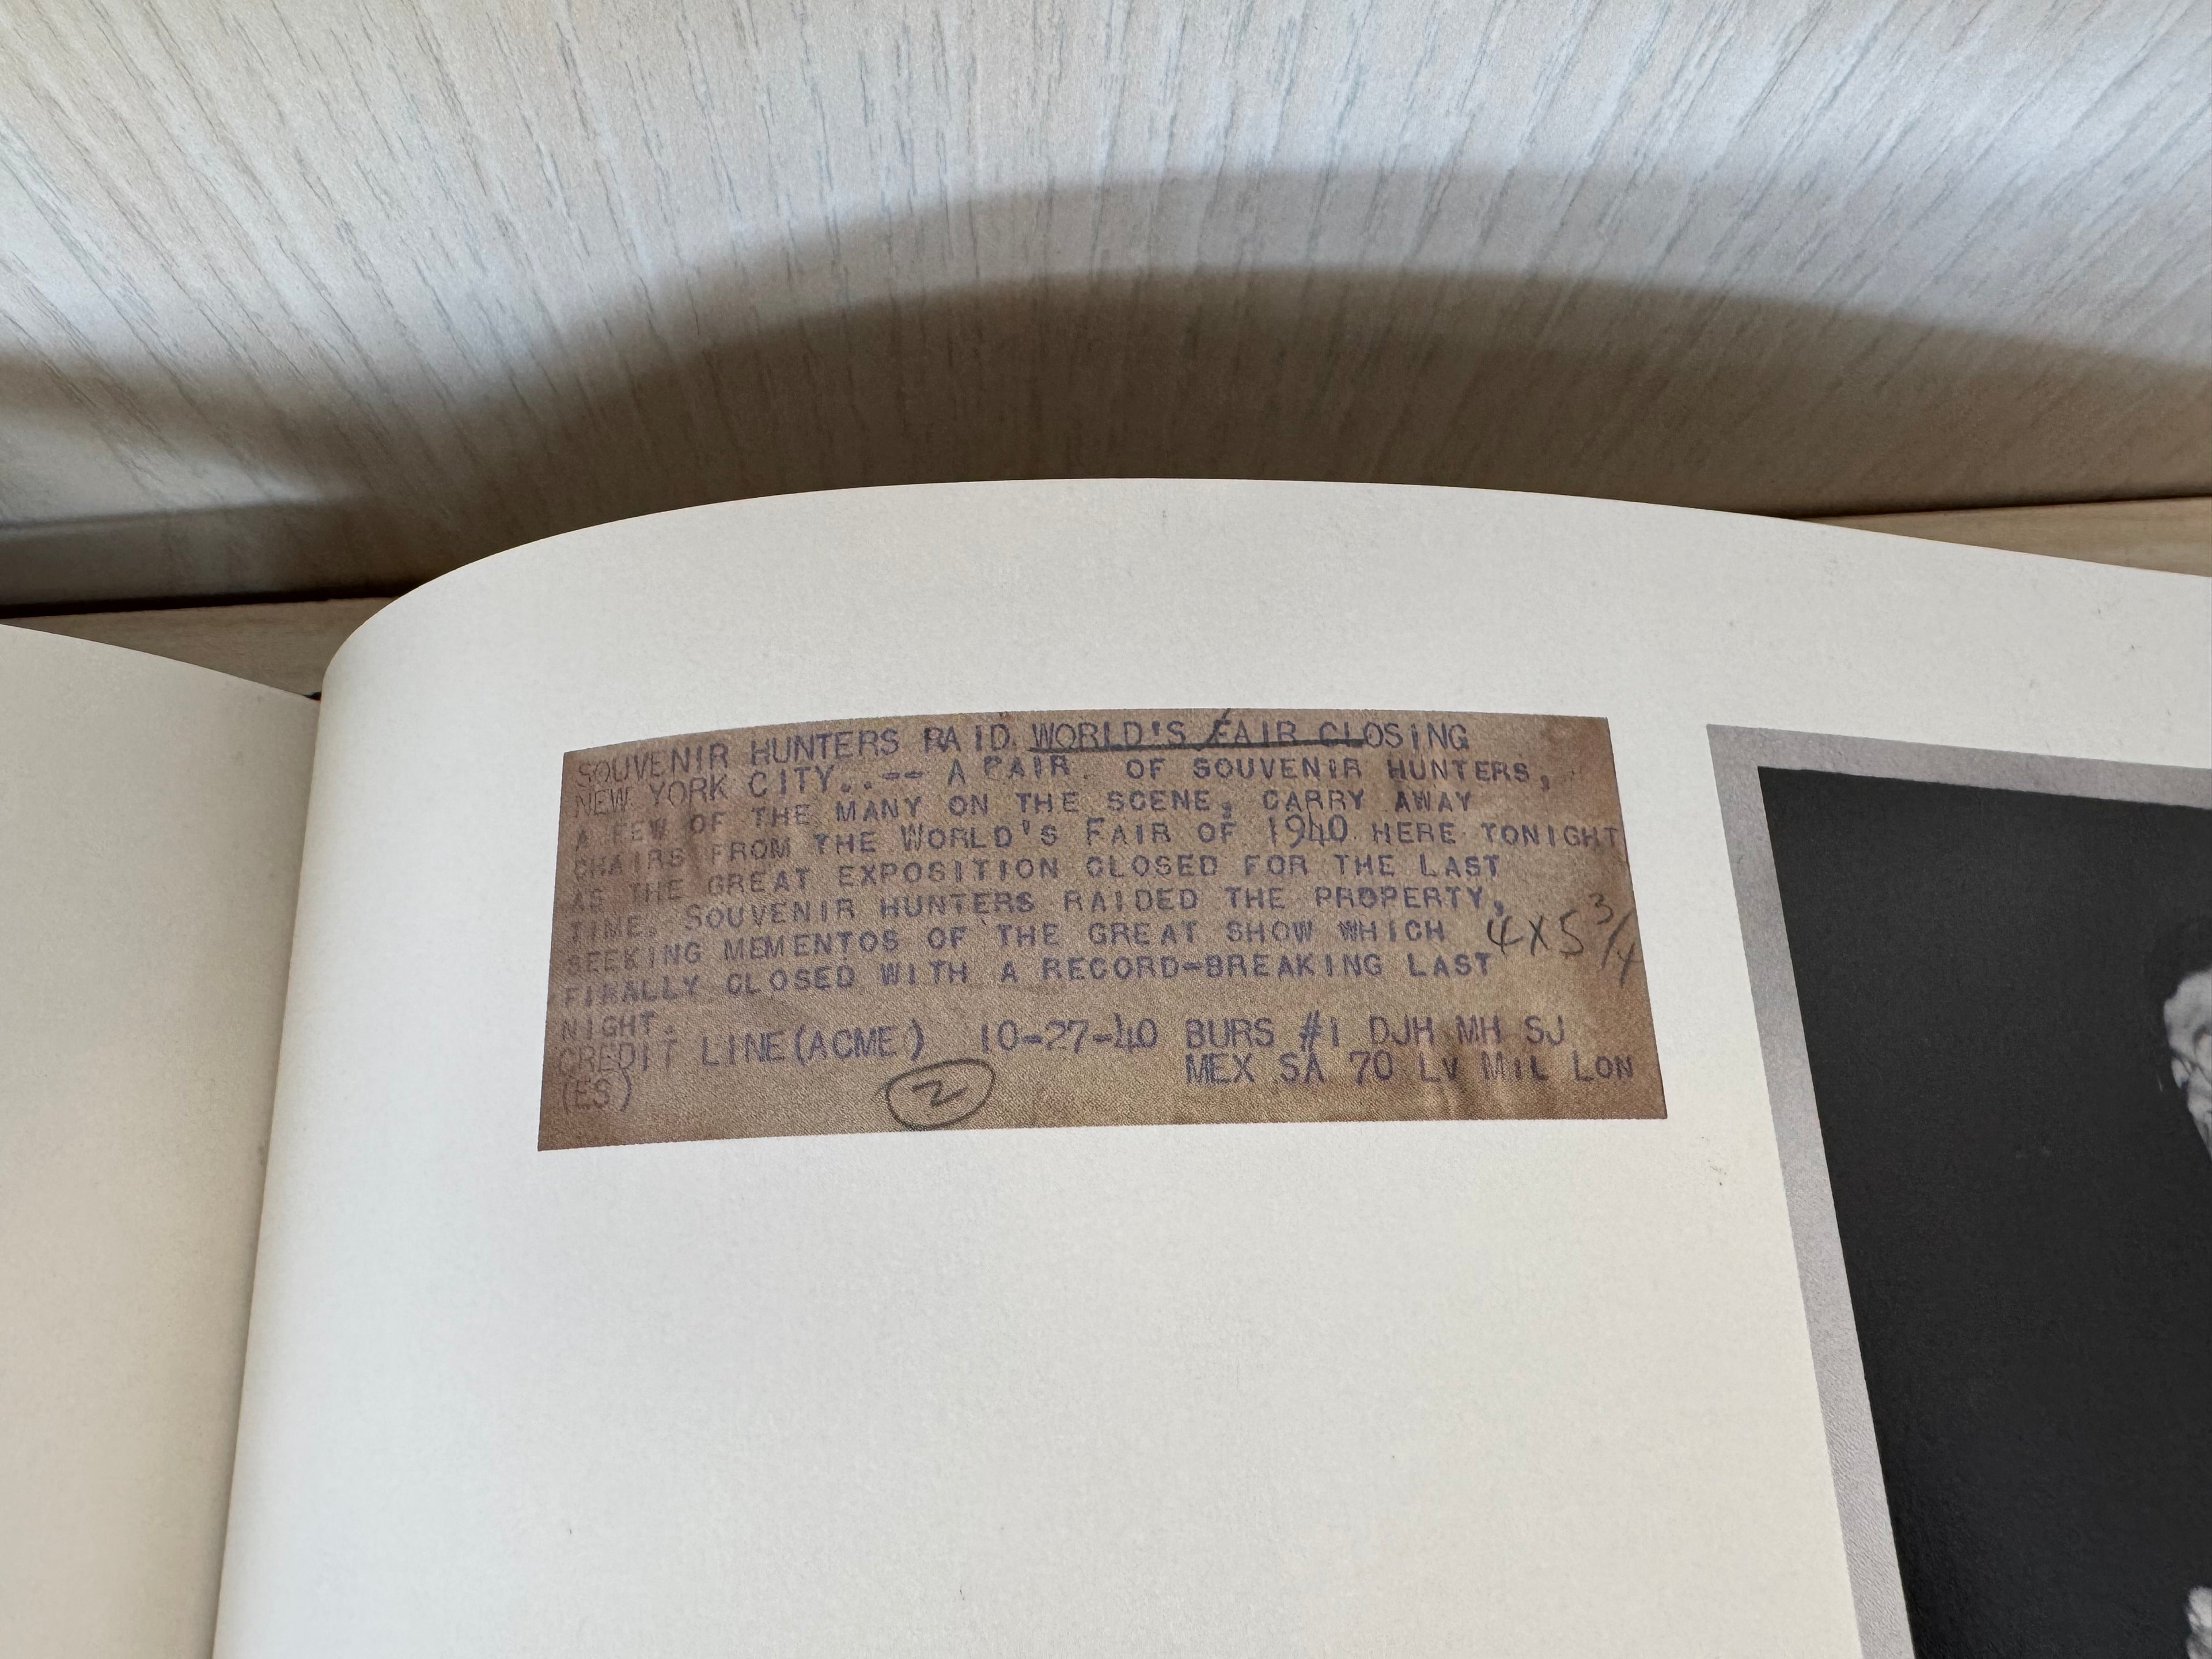 SOUVENIR HUNTERS RAID WORLD'S FAIR CLOSING
NEW YORK CITY..-- A PAIR. OF SOUVENIR HUNTERS,
A FEW OF THE MANY ON THE SCENE, CARRY AWAY
CHAIRS FROM THE WORLD'S FAIR OF 1940 HERE TONIGHT
AS THE GREAT EXPOSITION CLOSED FOR THE LAST
TIME. SOUVENIR HUNTERS RAIDED THE PROPERTY,
SEEKING MEMENTOS OF THE GREAT SHOW WHICH
FINALLY CLOSED WITH A RECORD-BREAKING LAST
NIGHT.
4 X 5 3/4
CREDIT LINE(ACME) 10-27-40 BURS #1 DJH MH SJ
(ES) MEX SA 70 LV MIL LON
2